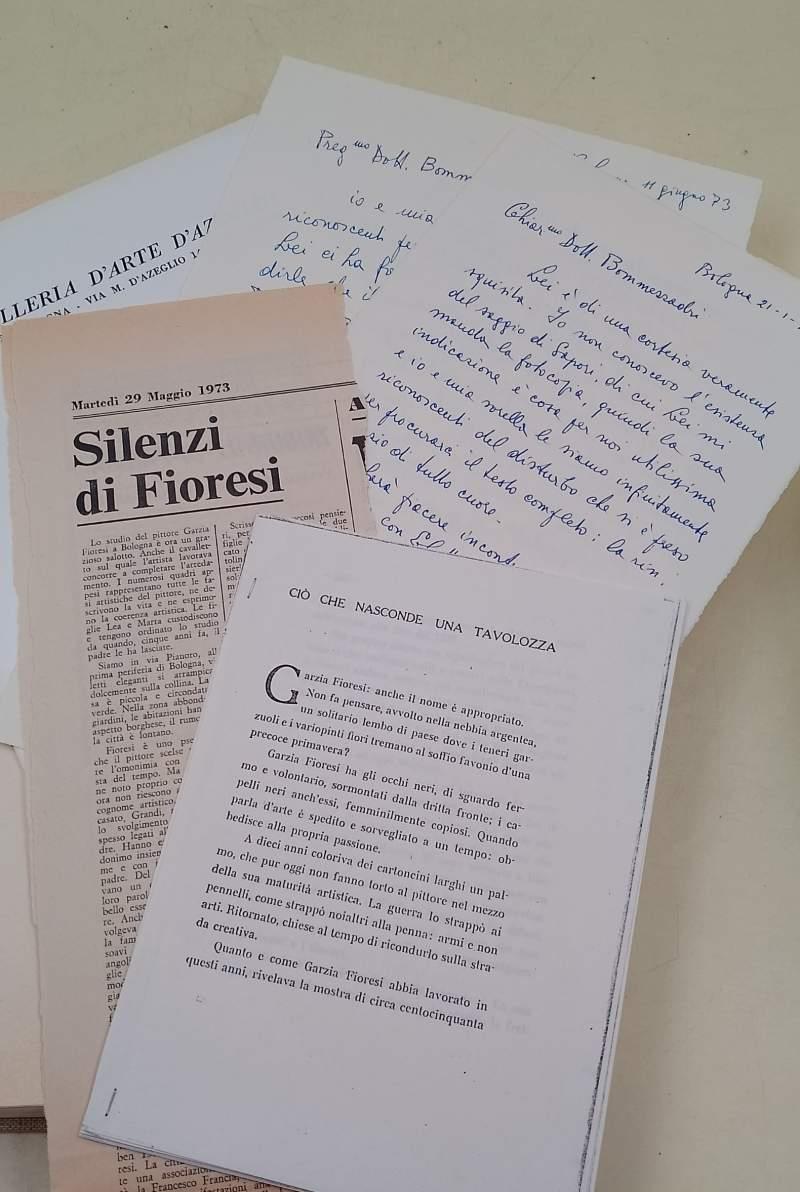 LLERIA D'ARTE D'AZ
GNA - VIA M. D'AZEGLIO 1
Preg mo Dott. Bomm
11 giugno 73
io e mia
riconoscenti
Lei ci ha
dirle che il
Bologna 21-1-
Chiar mo Dott. Bommezzadri
Lei è di una cortesia veramente
squisita. Io non conoscevo l'esistenza
del saggio di Sapori, di cui Lei mi
manda la fotocopia, quindi la sua
indicazione è cosa per noi utilissima
e io e mia sorella le siamo infinitamente
riconoscenti del disturbo che si è preso
per procurarci il testo completo; la rin.
zio di tutto cuore.
farà piacere incont
con
Martedì 29 Maggio 1973
Silenzi
di Fioresi
Lo studio del pittore Garzia
Fioresi a Bologna è ora un gra-
zioso salotto. Anche il cavallet-
to sul quale l'artista lavorava
concorre a completare l'arreda-
mento. I numerosi quadri ap-
pesi rappresentano tutte le fa-
si artistiche del pittore, ne de-
scrivono la vita e ne esprimo-
no la coerenza artistica. Le fi-
glie Lea e Marta custodiscono
e tengono ordinato lo studio
da quando, cinque anni fa, il
padre le ha lasciate.
Siamo in via Pianoro, all
prima periferia di Bologna, v
letti eleganti si arrampica
dolcemente sulla collina. La
sa è piccola e circondat
verde. Nella zona abbond
giardini, le abitazioni han
aspetto borghese, il rumo
la città è lontano.
Fioresi è uno pse
che il pittore scelse
re l'omonimia con
sta del tempo. Ma
ne noto proprio co
ora non riescono
cognome artistico,
casato, Grandi,
lo svolgimento
spesso legati al
dre. Hanno e
donimo insien
me e con
padre. Del
vano un
loro parol
bello esse
re. Anch
volgeva
la fam
soavi
angol
glie
mod
gia
A
Scriss
ri, pe
figlie
cato
tolin
sier
sol
cosi pensie-
le due
CIÒ CHE NASCONDE UNA TAVOLOZZA
Garzia Fioresi: anche il nome è appropriato.
Non fa pensare, avvolto nella nebbia argentea,
un solitario lembo di paese dove i teneri gar-
zuoli e i variopinti fiori tremano al soffio favonio d'una
precoce primavera?
Garzia Fioresi ha gli occhi neri, di sguardo fer-
mo e volontario, sormontati dalla dritta fronte; i ca-
pelli neri anch'essi, femminilmente copiosi. Quando
parla d'arte è spedito e sorvegliato a un tempo: ob-
bedisce alla propria passione.
A dieci anni coloriva dei cartoncini larghi un pal-
mo, che pur oggi non fanno torto al pittore nel mezzo
della sua maturità artistica. La guerra lo strappò ai
pennelli, come strappò noialtri alla penna: armi e non
arti. Ritornato, chiese al tempo di ricondurlo sulla stra-
da creativa.
Quanto e come Garzia Fioresi abbia lavorato in
questi anni, rivelava la mostra di circa centocinquanta
ben
resi. La
te una associazion
la Francesco Francia,